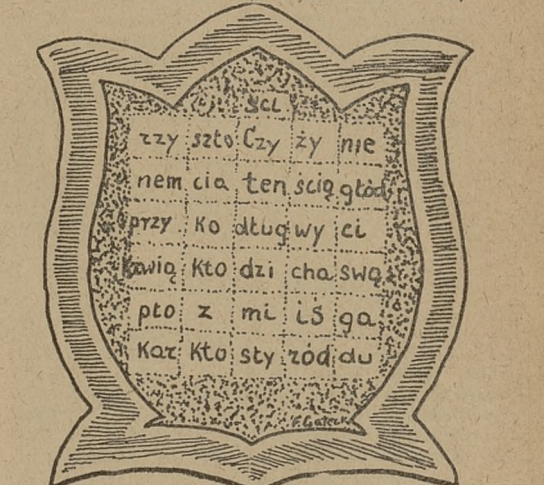 ści
rzy szto Czy ży nie
nem cia ten ścią głód
przy ko dług wy ci
krwią kto dzi cha swą
pto z mi iś ga
kar kto sty ród du